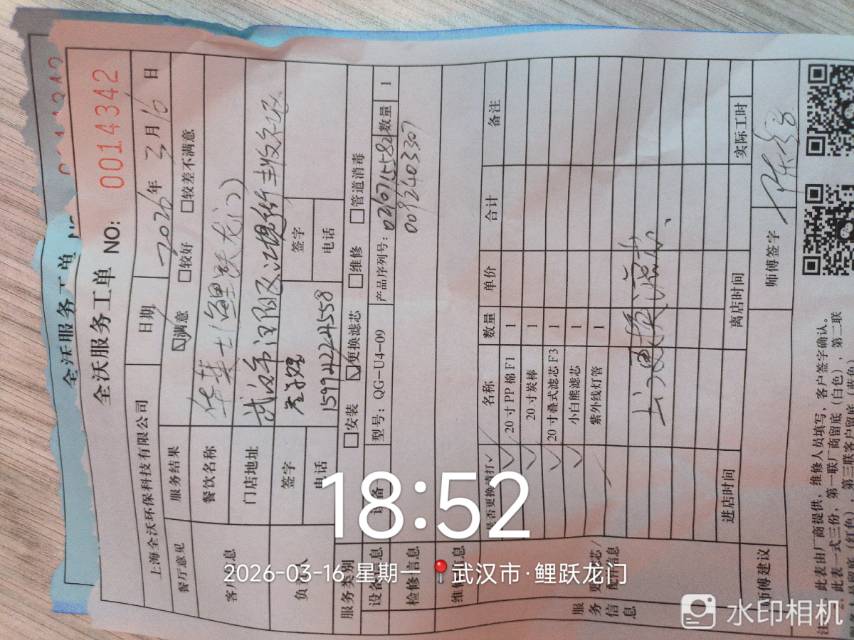 全沃服务工单 NO:
全沃服务工单 NO: 0014342
上海全沃环保科技有限公司 日期 2026年3月16日
餐厅意见 服务结果 ☑满意 □较好 □较差不满意
餐饮名称 华莱士(鲤跃龙门)
门店地址 武汉市汉阳区江堤街
签字 签字
电话 15994224558 电话
□安装 ☑更换滤芯 □维修 □管道消毒
型号: QG-U4-09 产品序列号: 数量 1
检修信息 0092403307
名称 数量 单价 合计 备注
✓ 20寸PP棉F1 1
✓ 20寸炭棒 1
✓ 20寸叠式滤芯F3 1
✓ 小白熊滤芯 1
紫外线灯管 1
服务信息
上门更换滤芯.
进店时间 离店时间 实际工时
师傅建议 师傅签字
此表由厂商提供,维修人员填写,客户签字确认。
此表一式三份,第一联厂商留底(白色),第二联
(红色),第三联客户留底(蓝色)
18:52
2026-03-16 星期一 武汉市·鲤跃龙门
水印相机